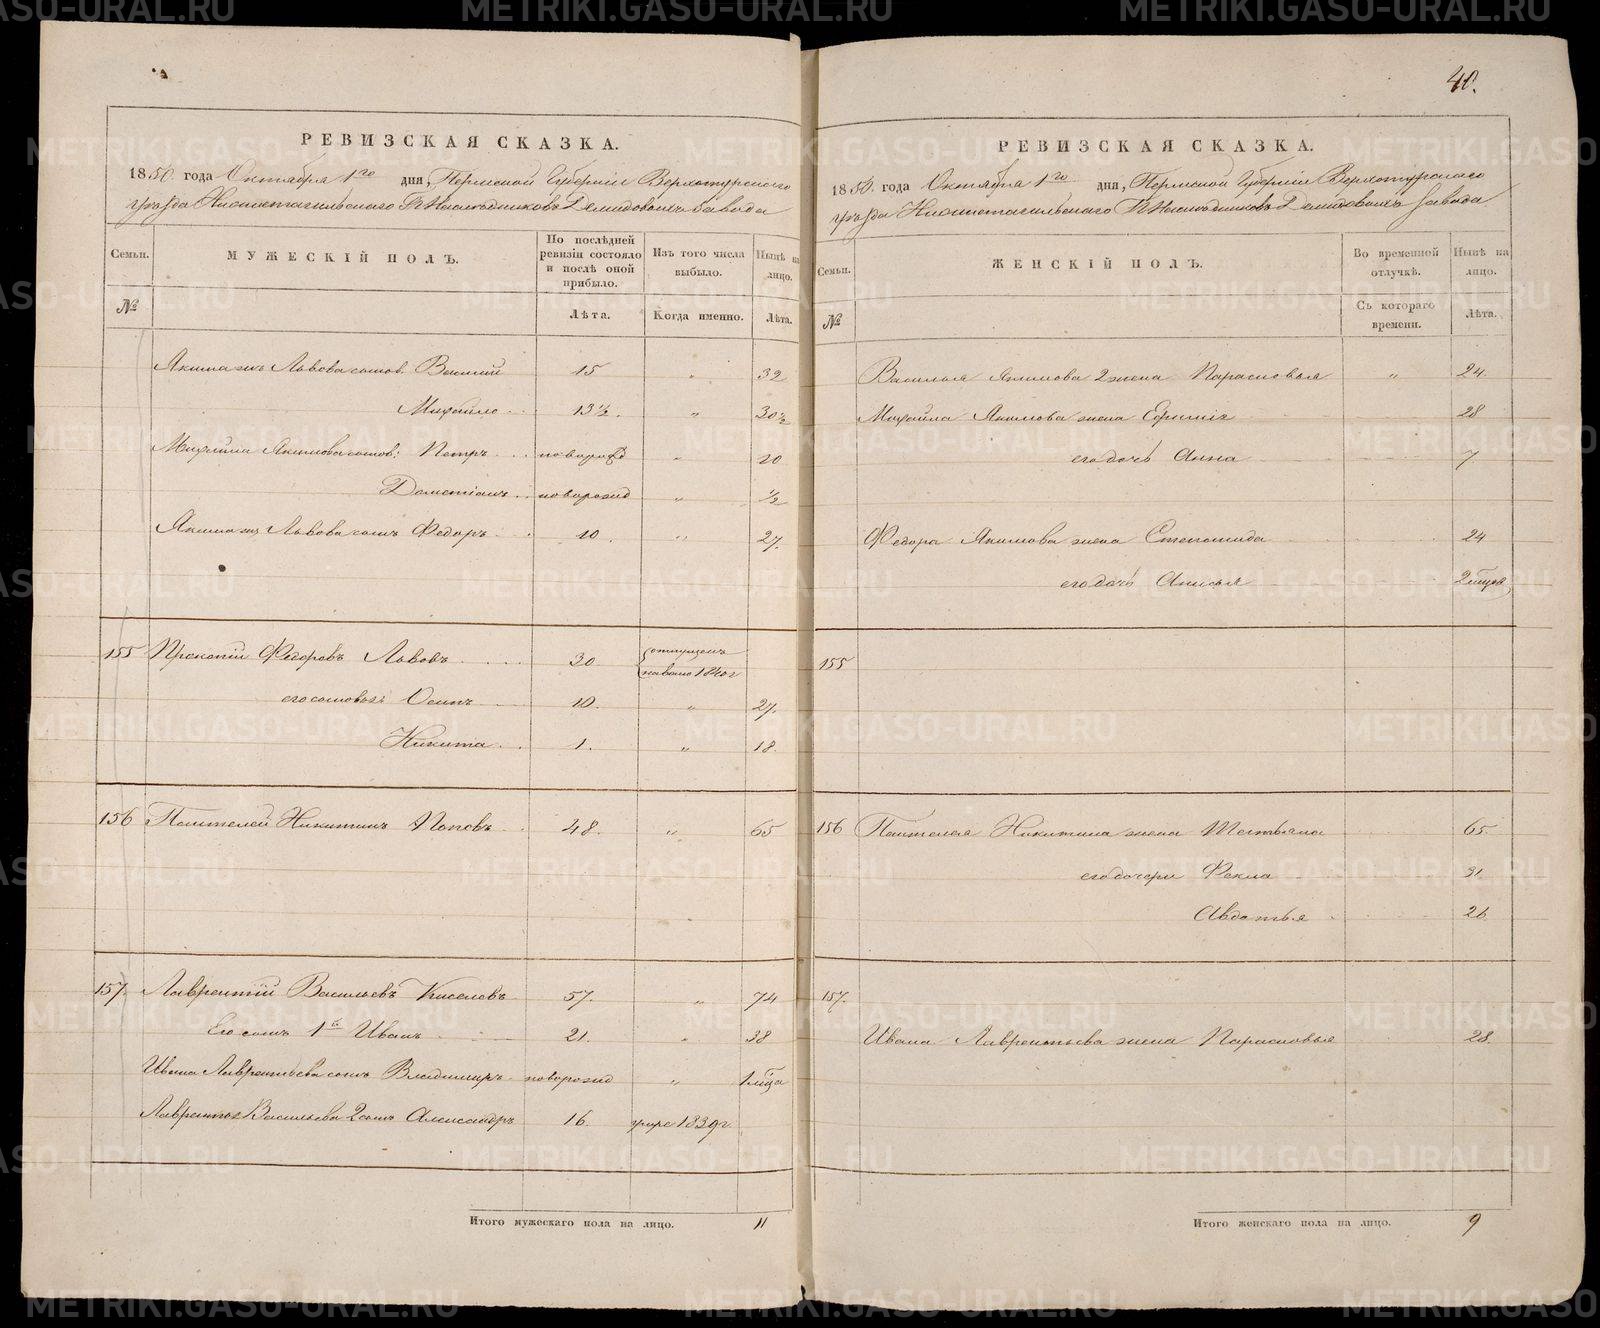 40.
РЕВИЗСКАЯ СКАЗКА.
1850. года Октября 1го дня, Пермской Губерніи Верхотурского
уѣзда Нижнетагильскаго Гг Наслѣдниковъ Демидовыхъ завода
Семьи. МУЖЕСКІЙ ПОЛЪ. По послѣдней ревизіи состояло и послѣ оной прибыло. Изъ того числа выбыло. Нынѣ на лицо.
№ Лѣта. Когда именно. Лѣта.
Львова сынов. Василий 15 „ 32
Михайло 13½. „ 30½
Михайла Якимова сынов: Петръ новорожд „ 10
Дометіанъ новорожд „ ½
Львова сынъ Федоръ 10. „ 27.
155 Прокопій Федоровъ Львовъ 30 1840г
его сыновья: Осипъ 10. „ 27.
Никита 1. „ 18.
156 Пантелей Никитинъ Поповъ 48. „ 65
157. Лаврентій Васильевъ Киселевъ 57. „ 74
Его сынъ 1й Иванъ 21. „ 38
Ивана Лаврентьева сынъ Владимиръ новорожд „ 1 мѣца
Лаврентья Васильева 2 сынъ Александръ 16. умре 1839г.
Итого мужескаго пола на лицо. 11
РЕВИЗСКАЯ СКАЗКА.
1850. года Октября 1го дня, Пермской Губерніи Верхотурскаго
уѣзда Нижнетагильскаго Гг Наслѣдниковъ Демидовыхъ завода
Семьи. ЖЕНСКІЙ ПОЛЪ. Во временной отлучкѣ. Нынѣ на лицо.
№ Съ котораго времени. Лѣта.
Василья Якимова 2 жена Парасковья „ 24.
Михайла Якимова жена Ефимія 28
его дочь Анна 7
Федора Якимова жена Степанида 24
его дочь Анисья 2 мѣцов
155
156 Пантелея Никитина жена Татьяна 65.
его дочери Фекла 31
Авдотья 26
157.
Ивана Лаврентьева жена Парасковья 28.
Итого женскаго пола на лицо. 9
METRIKI.GASO-URAL.RU